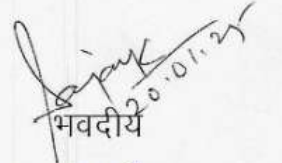 20.01.25
भवदीय